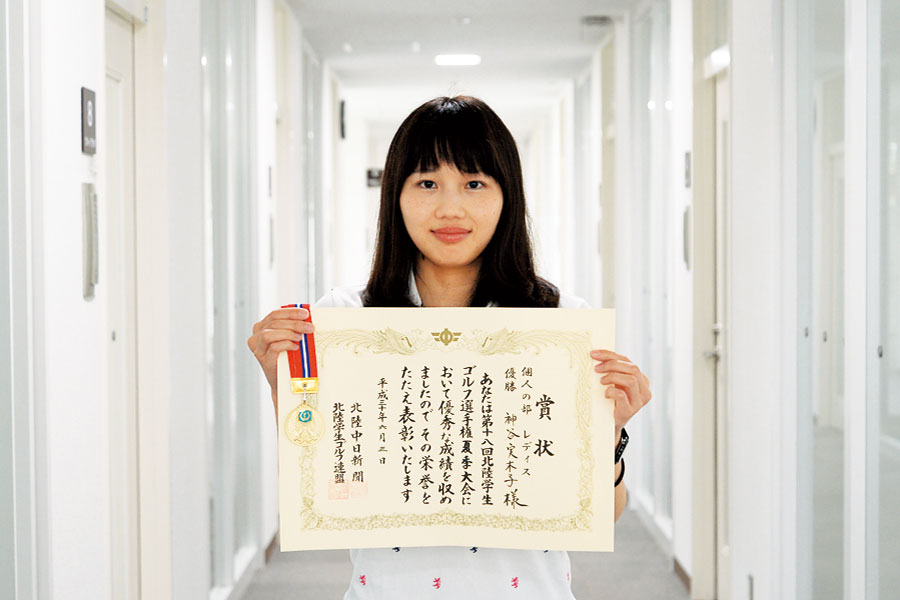 賞状
個人の部 レディス
優勝 神谷実木子様
あなたは第十八回北陸学生
ゴルフ選手権夏季大会に
おいて優秀な成績を収め
ましたので その栄誉を
たたえ表彰いたします
平成三十年六月三日
北陸中日新聞
北陸学生ゴルフ連盟
8